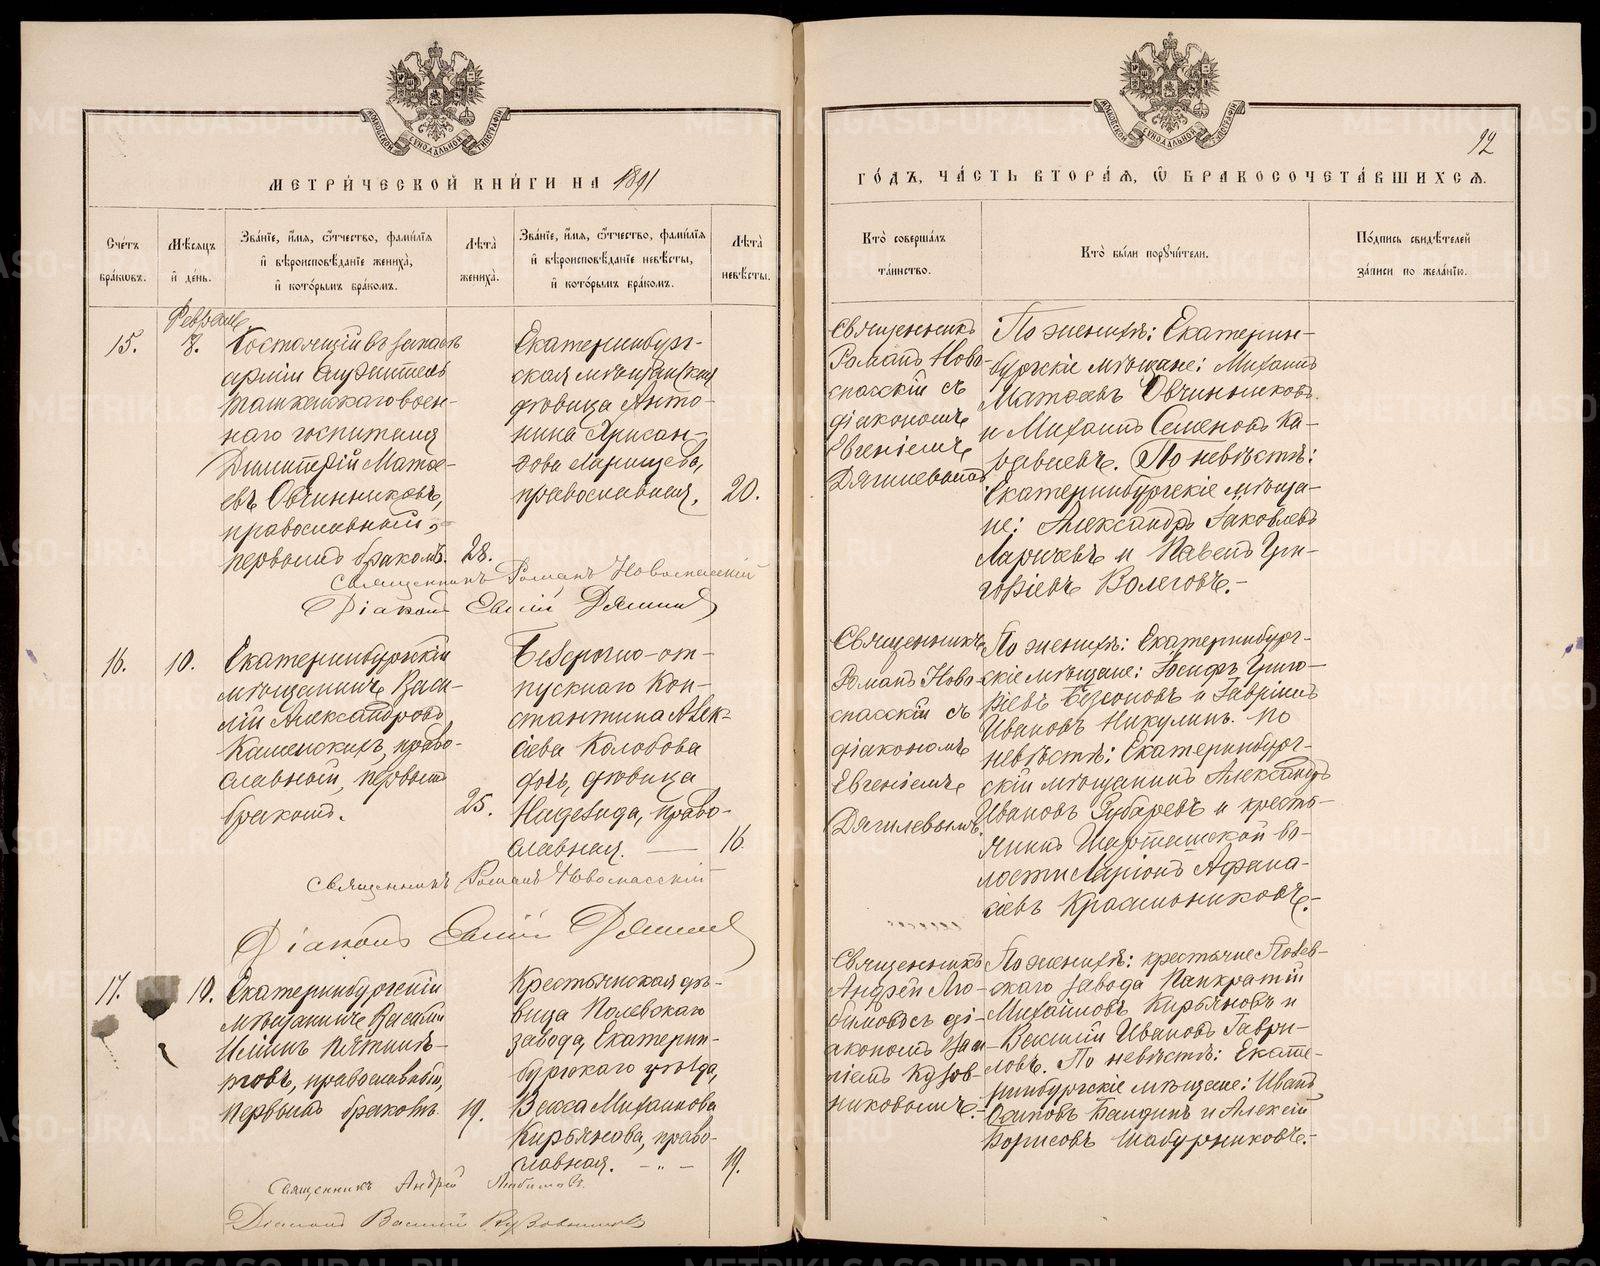 МЕТРИ́ЧЕСКОЙ КНИ́ГИ НА 1891
Сче́тъ бра́ковъ.
Мѣсяцъ и҆ де́нь.
Зва́нїе, и҆́мѧ, ѻ҆́тчество, фами́лїѧ и҆ вѣроисповѣ́данїе жениха̀, и҆ кото́рымъ бра́комъ.
Лѣта̀ жениха̀.
Зва́нїе, и҆́мѧ, ѻ҆́тчество, фами́лїѧ и҆ вѣроисповѣ́данїе невѣ́сты, и҆ кото́рымъ бра́комъ.
Лѣта̀ невѣ́сты.
15.
Февраль
8.
Состоящій въ запасѣ
арміи служитель
Ташкентскаго воен-
наго госпиталя
Димитрій Матѳе-
евъ Овчинниковъ,
православный,
первымъ бракомъ.
28.
Екатеринбург-
ская мѣщанская
дѣвица Анто-
нина
православная,
20.
Священникъ Романъ Новоспасскій
Діаконъ Евгеній Дягилевъ
16.
10.
Екатеринбургскій
мѣщанинъ Васи-
лій Александровъ
Каменскихъ, право-
славный, первымъ
бракомъ.
25.
Безсрочно-от-
пускнаго Кон-
стантина Алек-
сіева Колобова
дочь, дѣвица
Надежда, право-
славная. —
16
Священникъ Романъ Новоспасскій
Діаконъ Евгеній Дягилевъ
17.
10.
Екатеринбургскій
мѣщанинъ Василій
Ильинъ
православный,
первымъ бракомъ.
19.
Крестьянская дѣ-
вица Полевскаго
завода, Екатерин-
бургскаго уѣзда,
Васса Михаилова
Кирьянова, право-
славная. - „ -
19.
Священникъ Андрей Любимовъ.
Діаконъ Василій Кузовниковъ
12
ГО́ДЪ, ЧА́СТЬ ВТОРА́Ѧ, Ѽ БРАКОСОЧЕТА́ВШИХСѦ.
Кто̀ соверша́лъ та́инство.
Кто̀ бы́ли порꙋчи́тели.
По́дпись свидѣ́телей за́писи по жела́нїю.
Священникъ
Романъ Ново-
спасскій съ
діакономъ
Евгеніемъ
Дягилевымъ
По женихѣ: Екатерин-
бургскіе мѣщане: Михаилъ
Матѳеевъ Овчинниковъ
и Михаилъ Семеновъ Ка-
По невѣстѣ:
Екатеринбургскіе мѣща-
не: Александръ Іаковлевъ
Ларичевъ и Павелъ Гри-
горіевъ Волеговъ.-
Священникъ
Романъ Ново-
спасскій съ
діакономъ
Евгеніемъ
Дягилевымъ.
По женихѣ: Екатеринбург-
скіе мѣщане: Іосифъ Григо-
ріевъ и Гавріилъ
Ивановъ Никулинъ. По
невѣстѣ: Екатеринбург-
скій мѣщанинъ Александръ
Ивановъ Зубаревъ и кресть-
янинъ Шарташской во-
лости Ларіонъ Афана-
сіевъ Красильниковъ.-
Священникъ
Андрей Лю-
бимовъ съ ді-
акономъ Васи-
ліемъ Кузов-
никовымъ.-
По женихѣ: крестьяне Полев-
скаго завода Панкратій
Михайловъ Кирьяновъ и
Василій Ивановъ Гаври-
ловъ. По невѣстѣ: Екате-
ринбургскіе мѣщане: Иванъ
Осиповъ и Алексій
Борисовъ Шабурниковъ.-